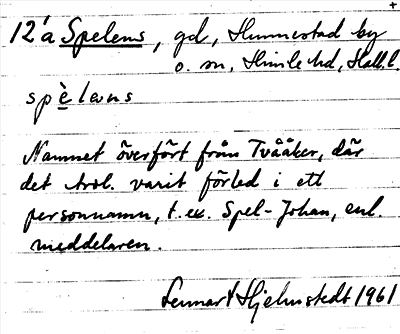 +
12'a Spelens, gd, Hunnestad by
o. sn, Himle hd, Hall. l.
spèlæns
Namnet överfört från Tvååker, där
det trol. varit förled i ett
personnamn, t. ex. Spel-Johan, enl.
meddelaren.
Lennart Hjelmstedt 1961